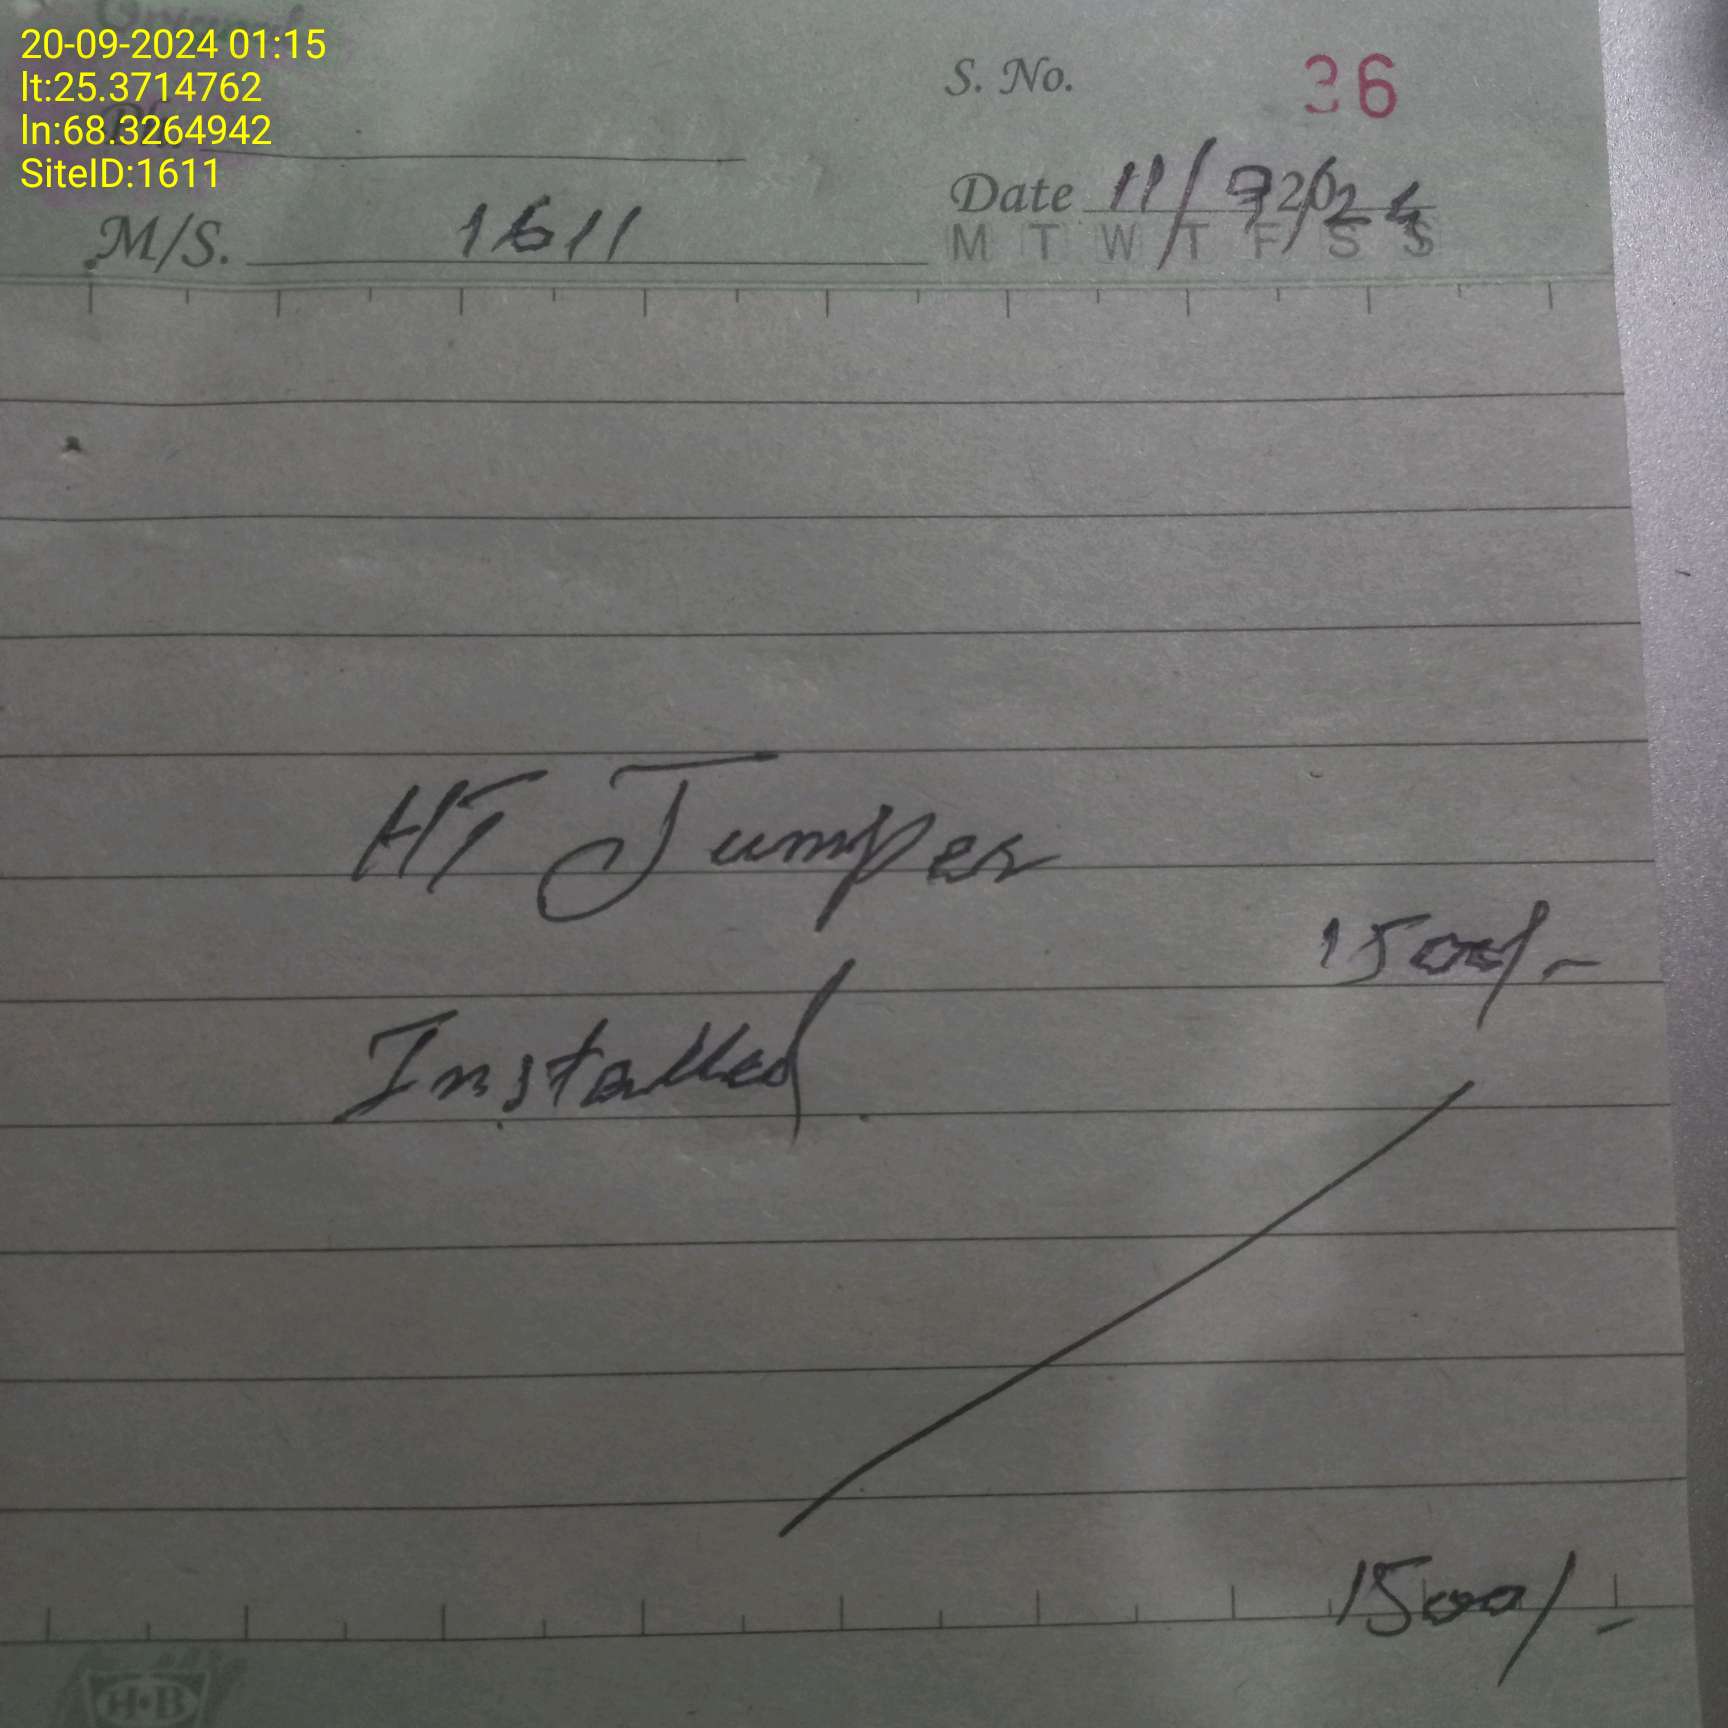 20-09-2024 01:15
lt:25.3714762
ln:68.3264942
SiteID:1611
S. No. 36
Date 11/9/2024
M/S. 1611
M T W T F S S
HT Jumper
1500/-
Installed
1500/-
H·B